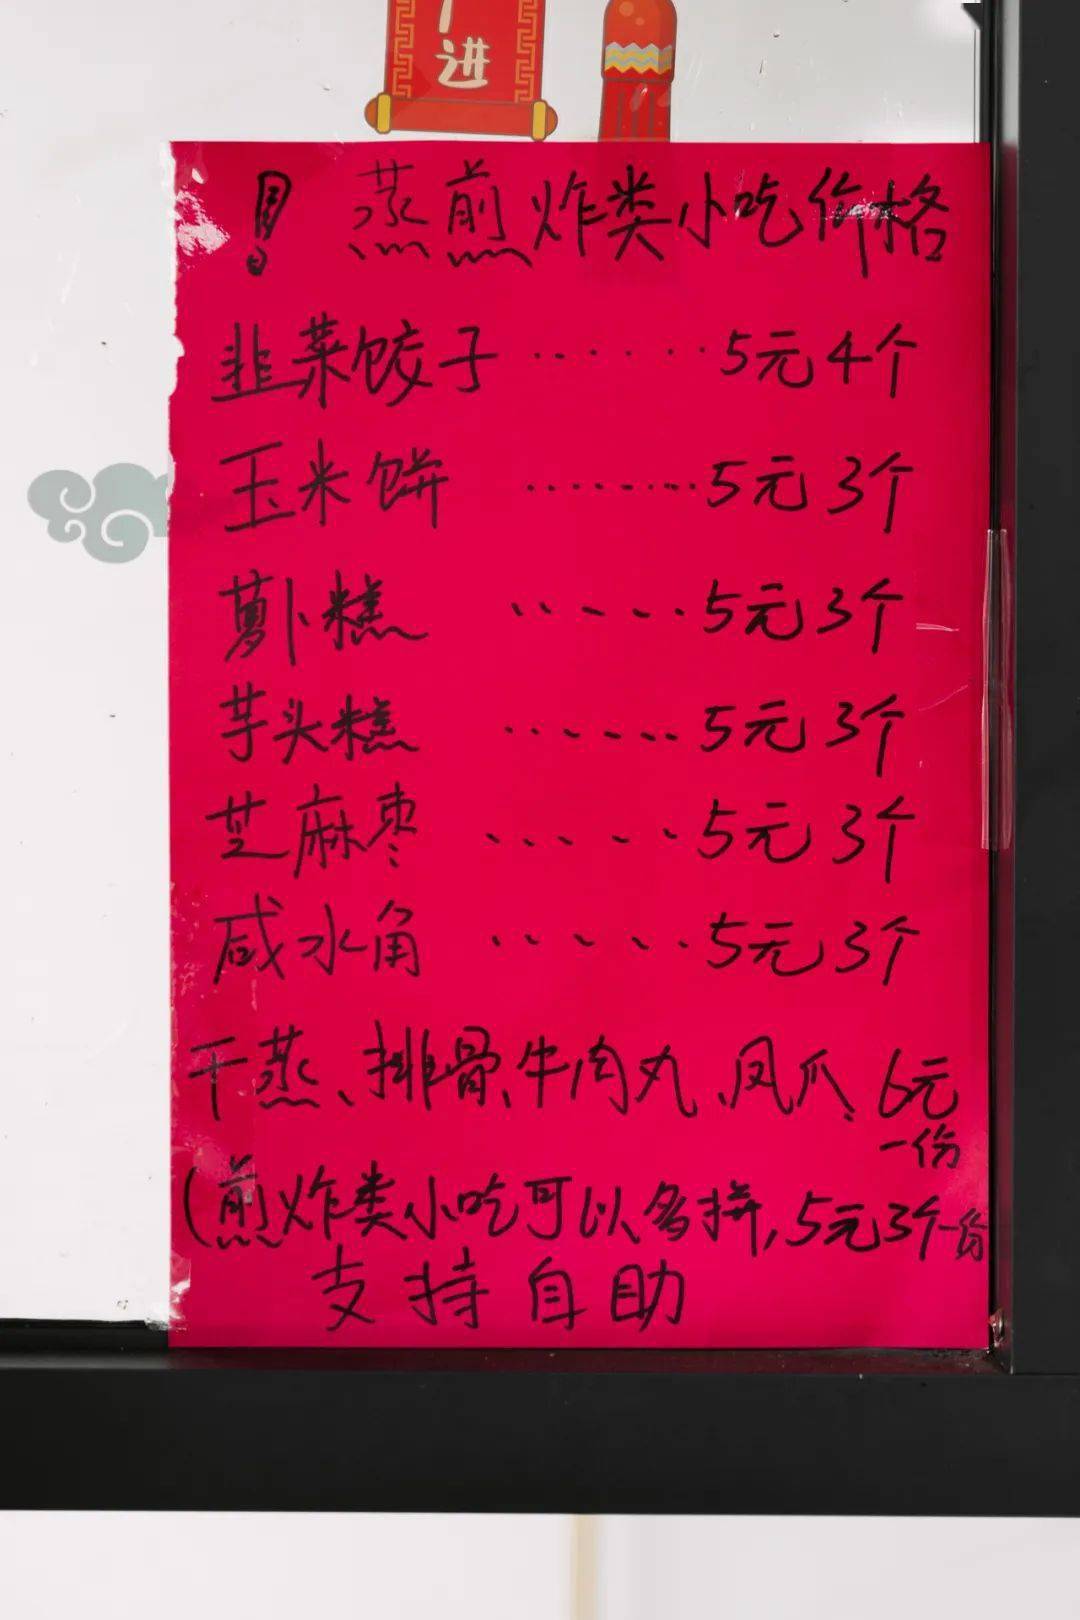 进
！ 蒸煎炸类小吃价格
韭菜饺子 ······· 5元4个
玉米饼 ········· 5元3个
萝卜糕 ······ 5元3个
芋头糕 ······· 5元3个
芝麻枣 ······ 5元3个
咸水角 ······ 5元3个
干蒸、排骨、牛肉丸、凤爪、6元
一份
(煎炸类小吃可以多拼,5元3个一份
支持自助